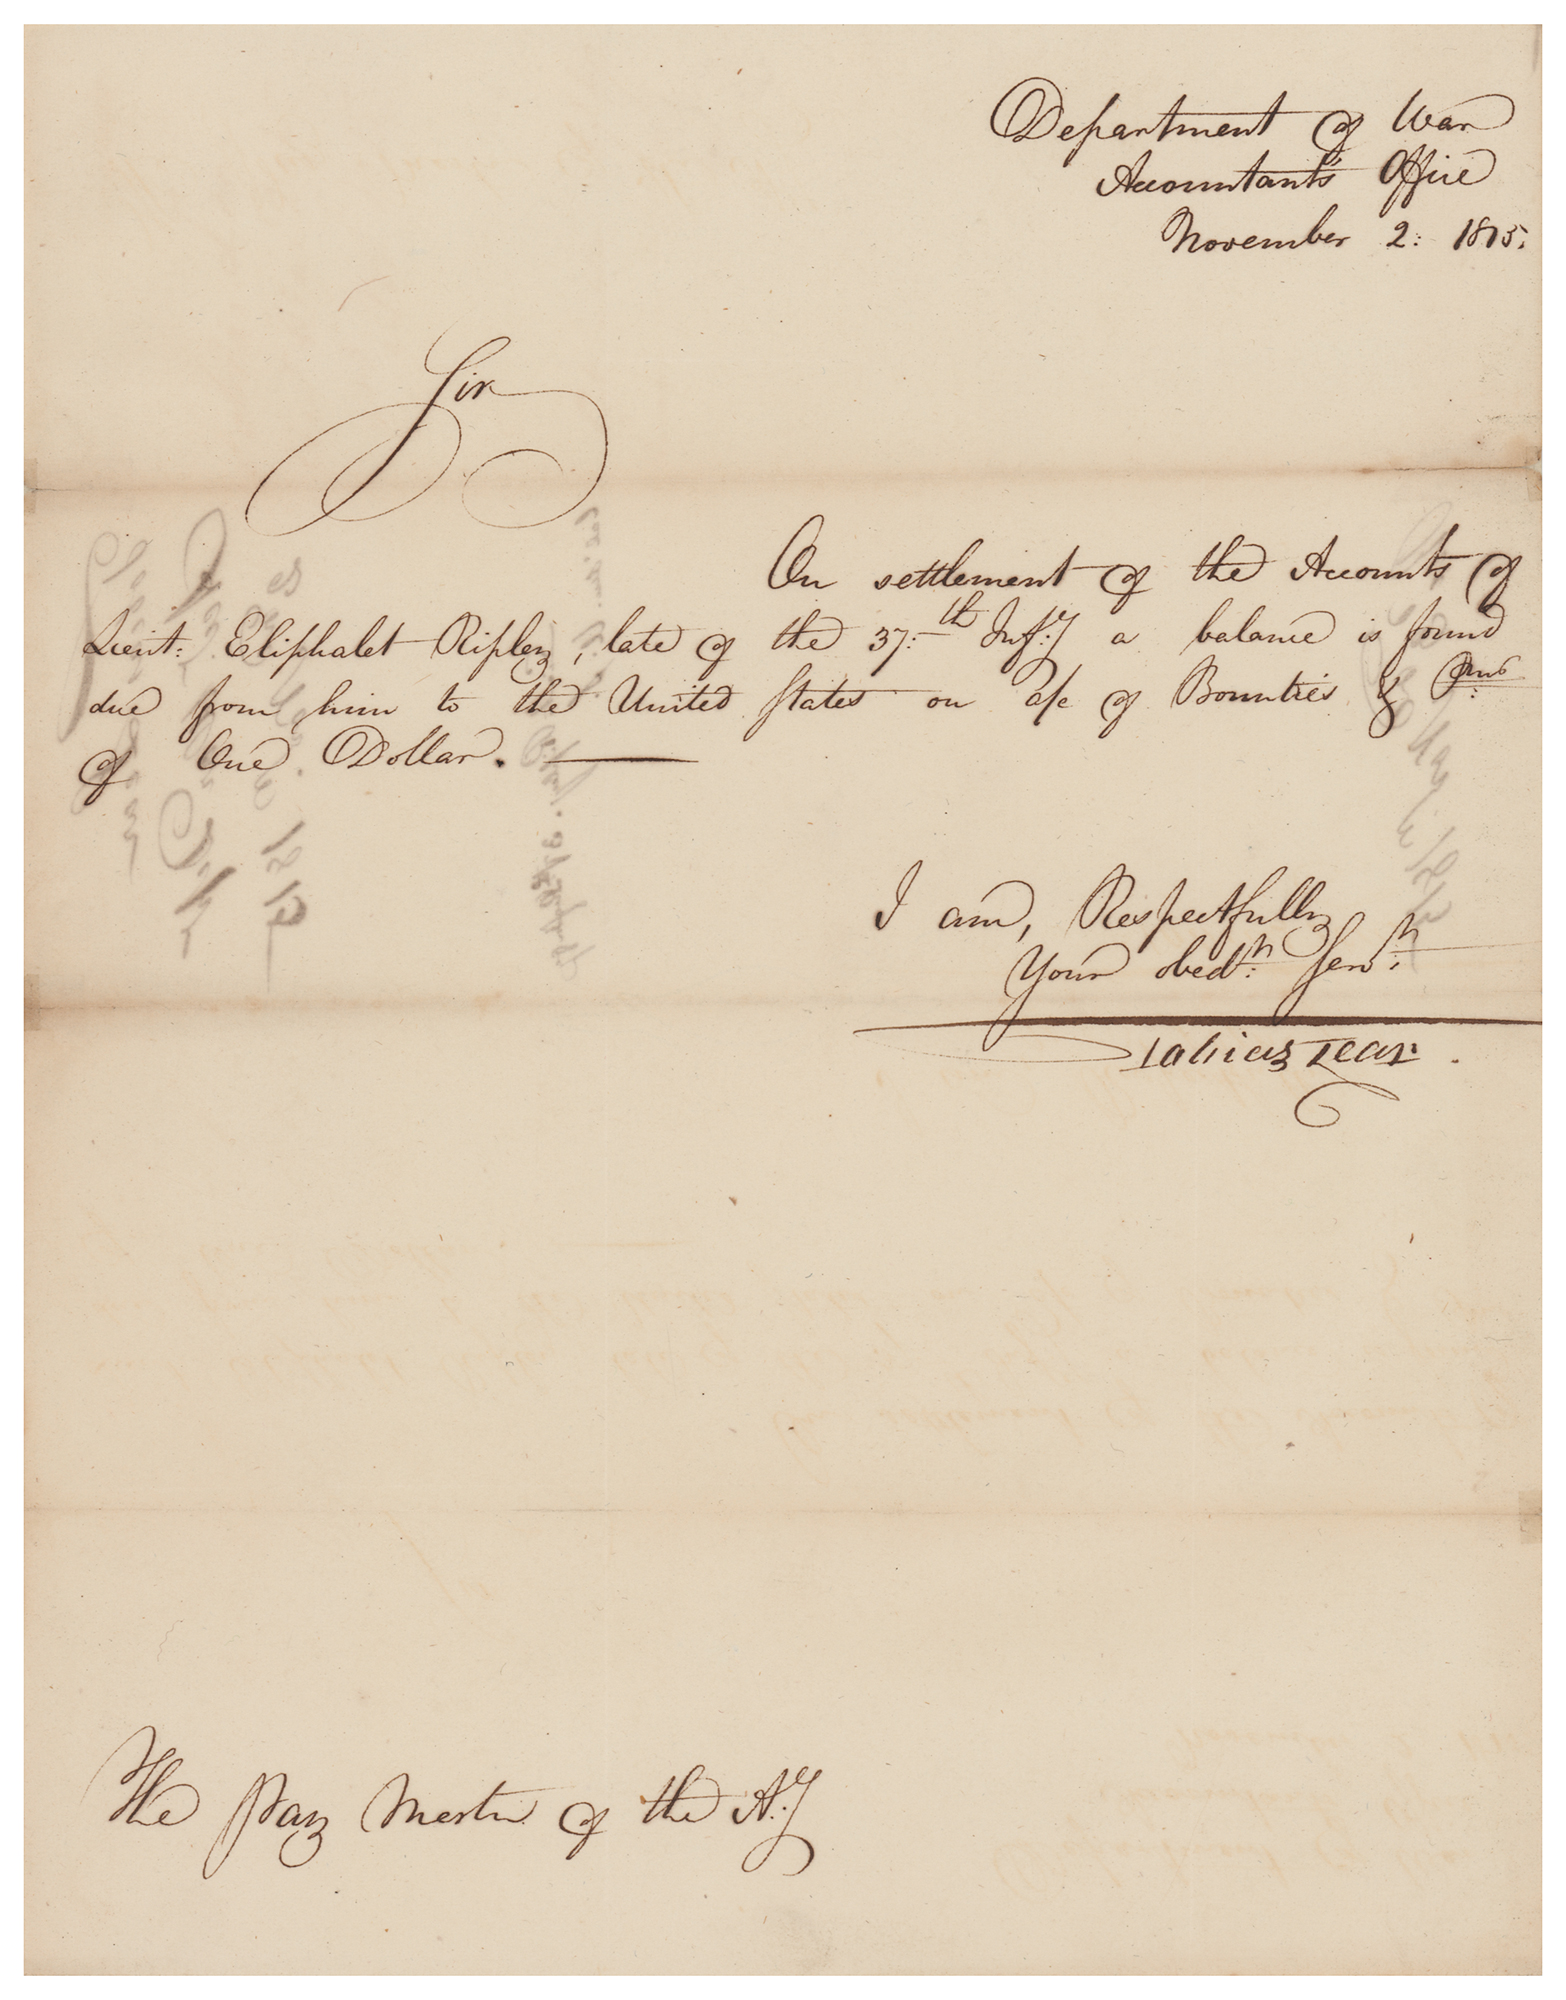 Department of War
Accountant's Office
November 2: 1815.
Sir
On settlement of the Accounts of
Lieut: Eliphalet Ripley, late of the 37:th Inf:y a balance is found
due from him to the United States on a/c of Bounties & Prms
of One Dollar. —
I am, Respectfully
Your obedt: Servt:
Tobias Lear.
The Pay Master of the A:y